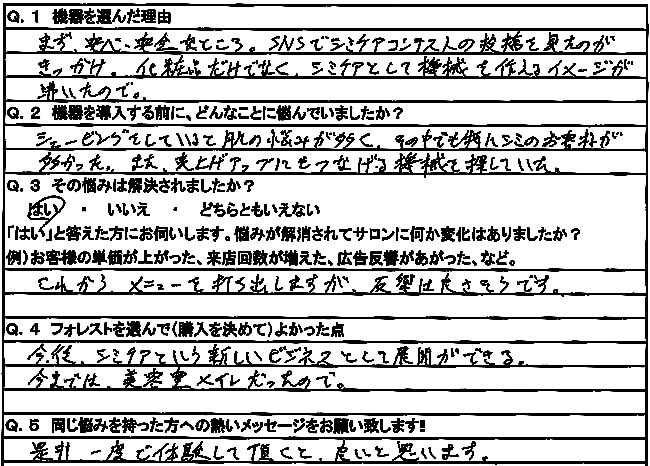 Q. 1 機器を選んだ理由
まず、安い、安全なところ。SNSでシミケアコンテストの投稿を見たのが
きっかけ。化粧品だけでなく、シミケアとして機械を使えるイメージが
湧いたので。
Q. 2 機器を導入する前に、どんなことに悩んでいましたか?
シェービングをしていると肌の悩みが多く、その中でも特にシミのお客様が
多かった。また、売上げアップにもつなげる機械を探していた。
Q. 3 その悩みは解決されましたか?
はい ・ いいえ ・ どちらともいえない
「はい」と答えた方にお伺いします。悩みが解消されてサロンに何か変化はありましたか?
例)お客様の単価が上がった、来店回数が増えた、広告反響があがった、など。
これから、メニューを打ち出しますが、反響はたさそうです。
Q. 4 フォレストを選んで(購入を決めて)よかった点
今後、シミケアという新しいビジネスとして展開ができる。
今までは、美容室メインだったので。
Q. 5 同じ悩みを持った方への熱いメッセージをお願い致します!!
是非、一度で体験して頂くと、良いと思います。